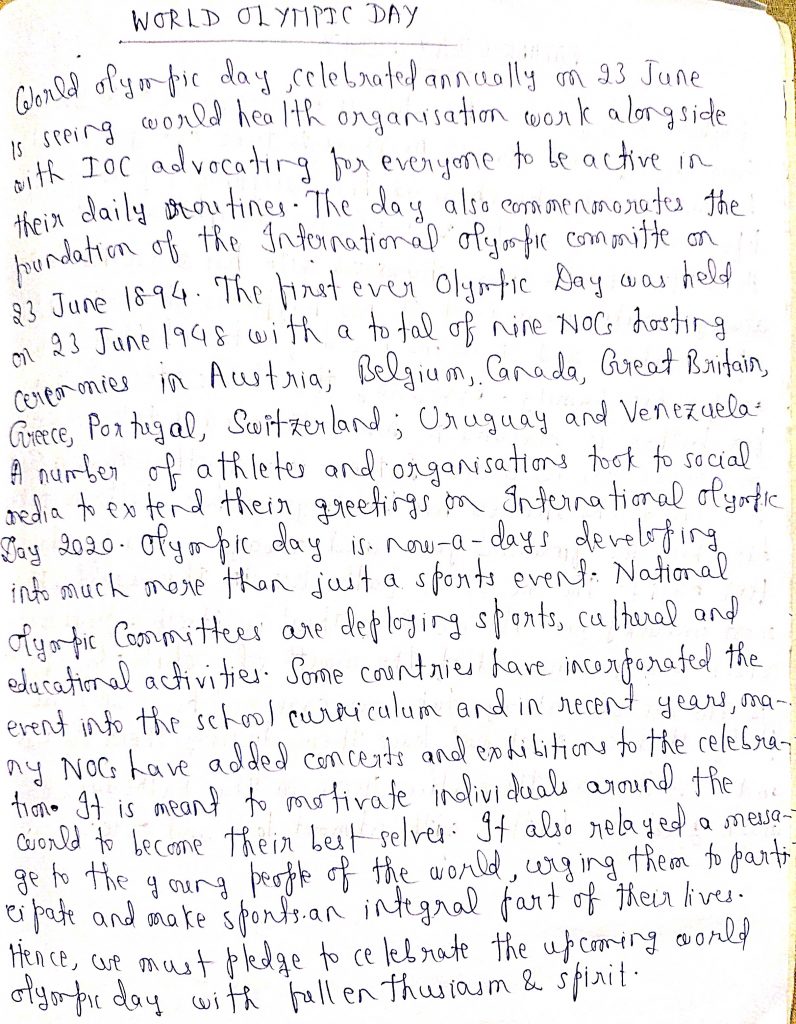 WORLD OLYMPIC DAY
World olympic day, celebrated annually on 23 June
is seeing world health organisation work alongside
with IOC advocating for everyone to be active in
their daily routines. The day also commenmorates the
foundation of the International olympic committe on
23 June 1894. The first ever Olympic Day was held
on 23 June 1948 with a total of nine NOCs hosting
ceremonies in Austria; Belgium, Canada, Great Britain,
Greece, Portugal, Switzerland; Uruguay and Venezuela.
A number of athletes and organisations took to social
media to extend their greetings on International olympic
Day 2020. Olympic day is now-a-days developing
into much more than just a sports event. National
olympic Committees are deploying sports, cultural and
educational activities. Some countries have incorporated the
event into the school curriculum and in recent years, ma-
ny NOCs have added concerts and exhibitions to the celebra-
tion. It is meant to motivate individuals around the
world to become their best selves. It also relayed a messa-
ge to the young people of the world, urging them to parti
cipate and make sports an integral part of their lives.
Hence, we must pledge to celebrate the upcoming world
olympic day with full enthusiasm & spirit.